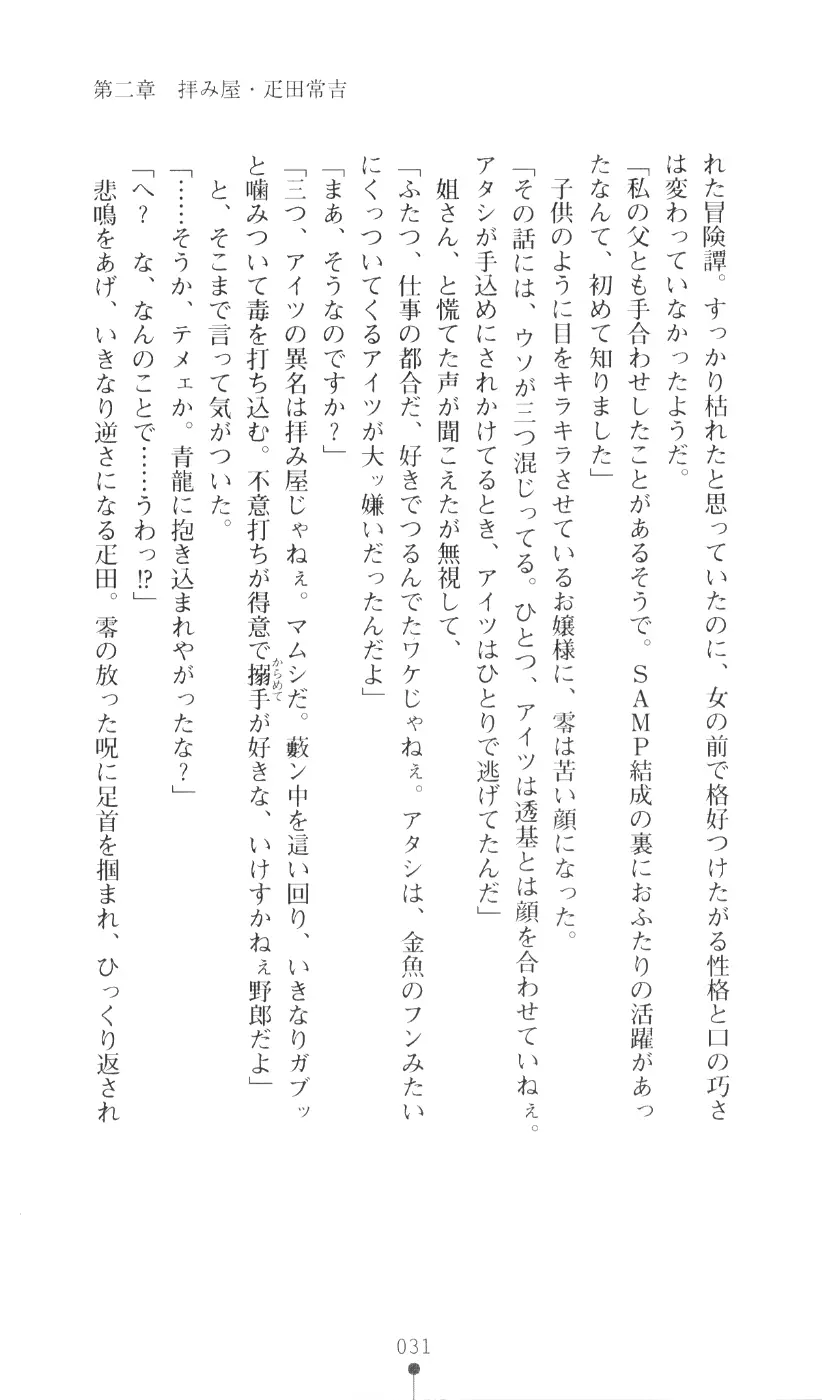 第二章　拝み屋・疋田常吉
れた冒険譚。すっかり枯れたと思っていたのに、女の前で格好つけたがる性格と口の巧さ
は変わっていなかったようだ。
「私の父とも手合わせしたことがあるそうで。ＳＡＭＰ結成の裏におふたりの活躍があっ
たなんて、初めて知りました」
　子供のように目をキラキラさせているお嬢様に、零は苦い顔になった。
「その話には、ウソが三つ混じってる。ひとつ、アイツは透基とは顔を合わせていねぇ。
アタシが手込めにされかけてるとき、アイツはひとりで逃げてたんだ」
　姐さん、と慌てた声が聞こえたが無視して、
「ふたつ、仕事の都合だ、好きでつるんでたワケじゃねぇ。アタシは、金魚のフンみたい
にくっついてくるアイツが大ッ嫌いだったんだよ」
「まあ、そうなのですか？」
「三つ、アイツの異名は拝み屋じゃねぇ。マムシだ。藪ン中を這い回り、いきなりガブッ
と噛みついて毒を打ち込む。不意打ちが得意で搦手からめてが好きな、いけすかねぇ野郎だよ」
　と、そこまで言って気がついた。
「……そうか、テメェか。青龍に抱き込まれやがったな？」
「へ？　な、なんのことで……うわっ!?」
　悲鳴をあげ、いきなり逆さになる疋田。零の放った呪に足首を掴まれ、ひっくり返され
031